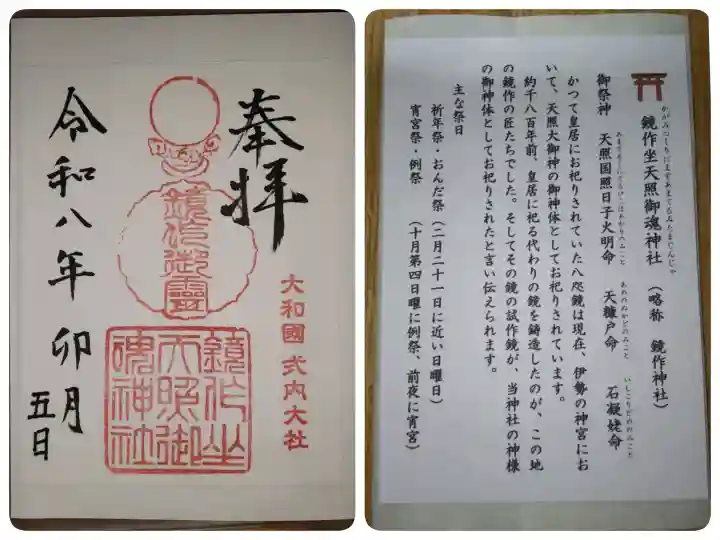 奉拝
鏡作御靈
大和國 式内大社
鏡作坐
天照御
魂神社
令和八年 卯月
五日
かがみつくりにますあまてるみたまじんじゃ
鏡作坐天照御魂神社 (略称 鏡作神社)
御祭神 天照国照日子火明命 天糠戸命 石凝姥命
かつて皇居にお祀りされていた八咫鏡は現在、伊勢の神宮にお
いて、天照大御神の御神体としてお祀りされています。
約千八百年前、皇居に祀る代わりの鏡を鋳造したのが、この地
の鏡作の匠たちでした。そしてその鏡の試作鏡が、当神社の神様
の御神体としてお祀りされたと言い伝えられます。
主な祭日
祈年祭・おんだ祭 (二月二十一日に近い日曜日)
宵宮祭・例祭 (十月第四日曜に例祭、前夜に宵宮)